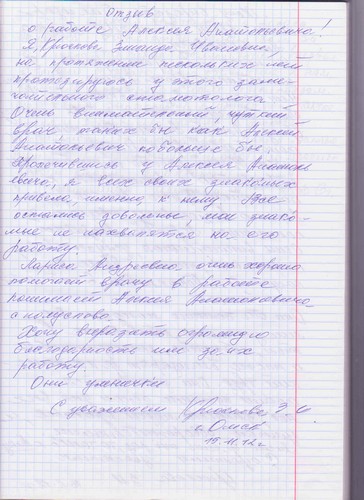 Отзыв
о работе Алексея Анатольевича!
Я, Крюкова Зинаида Ивановна,
на протяжении нескольких лет
протезируюсь у этого заме-
чательного стоматолога.
Очень внимательный, чуткий
врач, таких бы как Алексей
Анатольевич побольше бы.
у Алексея Анатоль-
евича, я всех своих знакомых
привела, именно к нему. Все
остались довольны, мои знако-
мые не нахвалятся на его
работу.
Лариса Андреевна очень хорошо
помогает врачу в работе
понимает Алексея Анатольевича
с полуслова.
Хочу выразить огромную
благодарность им за их
работу.
Они умнички
С уважением Крюкова З. И
г. Омск
19.11.12г